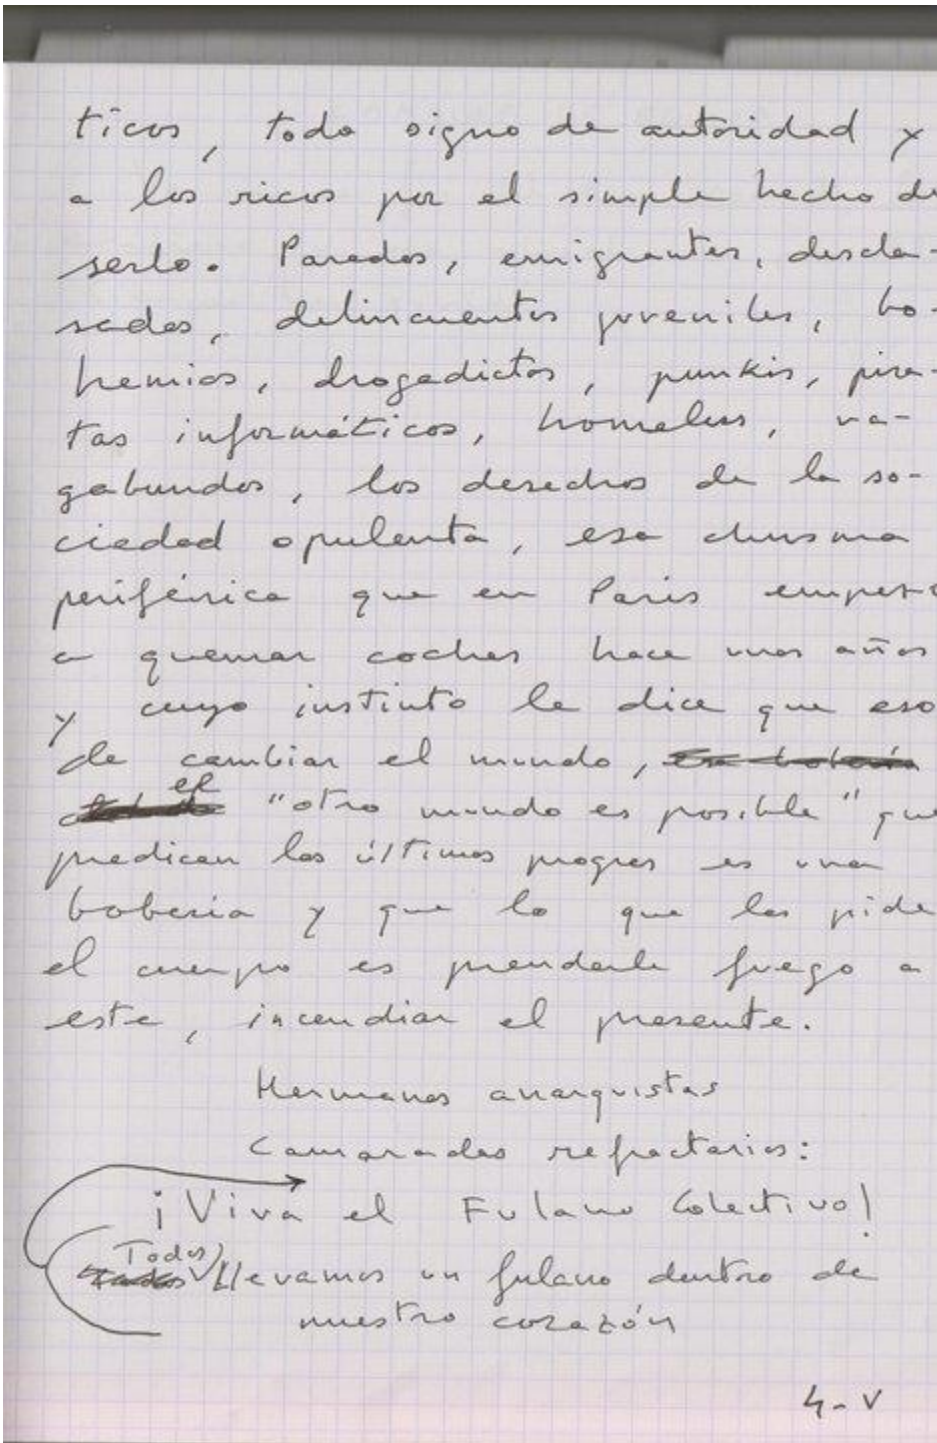 ticos, todo signo de autoridad y
a los ricos por el simple hecho de
serlo. Parados, emigrantes, descla-
sados, delincuentes juveniles, bo-
hemios, drogadictos, punkis, pira-
tas informáticos, homeless, va-
gabundos, los desechos de la so-
ciedad opulenta, esa chusma
periférica que en París empezó
a quemar coches hace unos años
y cuyo instinto le dice que eso
de cambiar el mundo,
el "otro mundo es posible" que
predican los últimos progres es una
boberia y que lo que les pide
el cuerpo es prenderle fuego a
este, incendiar el presente.
Hermanos anarquistas
Camaradas refractarios:
¡Viva el Fulano Colectivo!
Todos llevamos un fulano dentro de
nuestro corazón
4-V